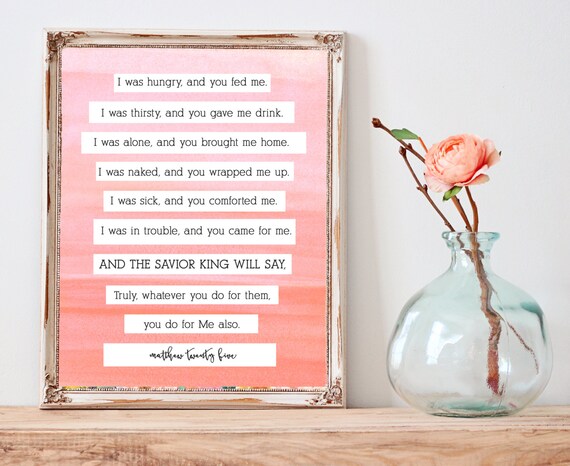 I was hungry, and you fed me.
I was thirsty, and you gave me drink.
I was alone, and you brought me home.
I was naked, and you wrapped me up.
I was sick, and you comforted me.
I was in trouble, and you came for me.
AND THE SAVIOR KING WILL SAY,
Truly, whatever you do for them,
you do for Me also.
matthew twenty five